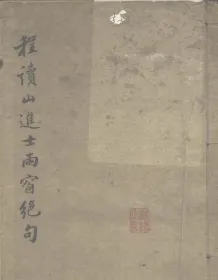 程讀山進士雨窗絕句